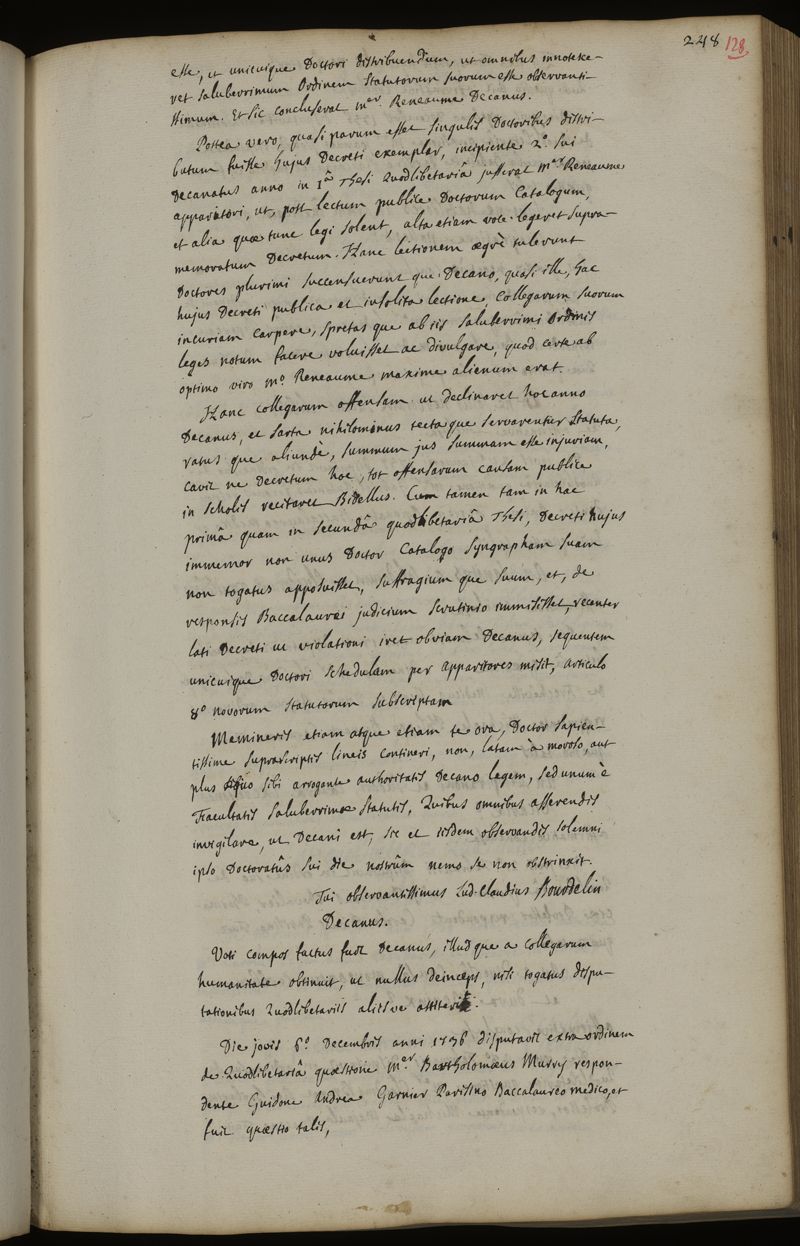 248 128
esse, ut unicuique Doctori distribuendum, ut omnibus innotesce-
ret saluberrimum Ordinem Statutorum suorum esse observanti-
ssimum. Et sic concluserat mer. Reneaume Decanus.
Postea vero, quasi parum esset singulis Doctoribus distri-
butum fuisse hujus Decreti exemplar, incipiente 2o. sui
Decanatus anno in 1â Thesi Quodlibetariâ jusserat Mer Reneaume
apparitori, ut, post lectum publice Doctorum Catalogum,
et alia quæ tunc legi solent, alta etiam voce legeret supra-
memoratum Decretum. Hanc lectionem ægrè tulerunt
Doctores plurimi succensuerunt que Decano, quasi ille, hac
hujus Decreti publica et insolita lectione, Collegarum suorum
incuriam carpere, spretas que ab iis saluberrimi Ordinis
leges notum facere voluisset ac divulgare, quod certe ab
optimo viro Mo. Reneaume maxime alienum erat.
Hanc collegarum offensam ut declinaret hoc anno
Decanus, et sarta nihilominus tecta que servarentur Statuta,
ratus que aliundè, summum jus summam esse injuriam,
cavit ne Decretum hoc, tot offensarum causam publice
in scholis recitaret Bidellus. Cum tamen tam in hac
primâ quam in secundâ quodlibetariâ Thesi, Decreti hujus
immemor non unus Doctor Catalogo Syngrapham suam
non togatus apposuisset, suffragium que suum, et, de
responsis Baccalaurei judicium scrutinio immisisset, recenter
lati Decreti ut violationi iret obviam Decanus, sequentem
unicuique Doctori schedulam per apparitores misit, articulo
8o novorum Statutorum subscriptam
Memineris etiam atque etiam te oro, Doctor Sapien-
tissime suprascriptis lineis contineri, non, latam à moroso, aut
plus æquo sibi arrogante authoritatis Decano legem, sed unum è
Facultatis Saluberrimæ Statutis, Quibus omnibus asserendis
invigilare, ut Decani est, sic et iisdem observandis solemni
ipso Doctoratûs sui die nostrûm nemo se non obstrinxit.
Tui observantissimus Lud. Claudius Bourdelin
Decanus.
Voti compos factus fuit Decanus, illud que a collegarum
humanitate obtinuit, ut nullus deinceps, nisi togatus dispu-
tationibus Quodlibetariis aliis ve
Die jovis 6o. Decembris anni 1736 disputavit extra ordinem
de Quodlibetariâ quæstione Mer. Bartholomæus Murry respon-
dente Guidone Andrea Garnier Parisino Baccalaureo medico, et
fuit quæstio talis,